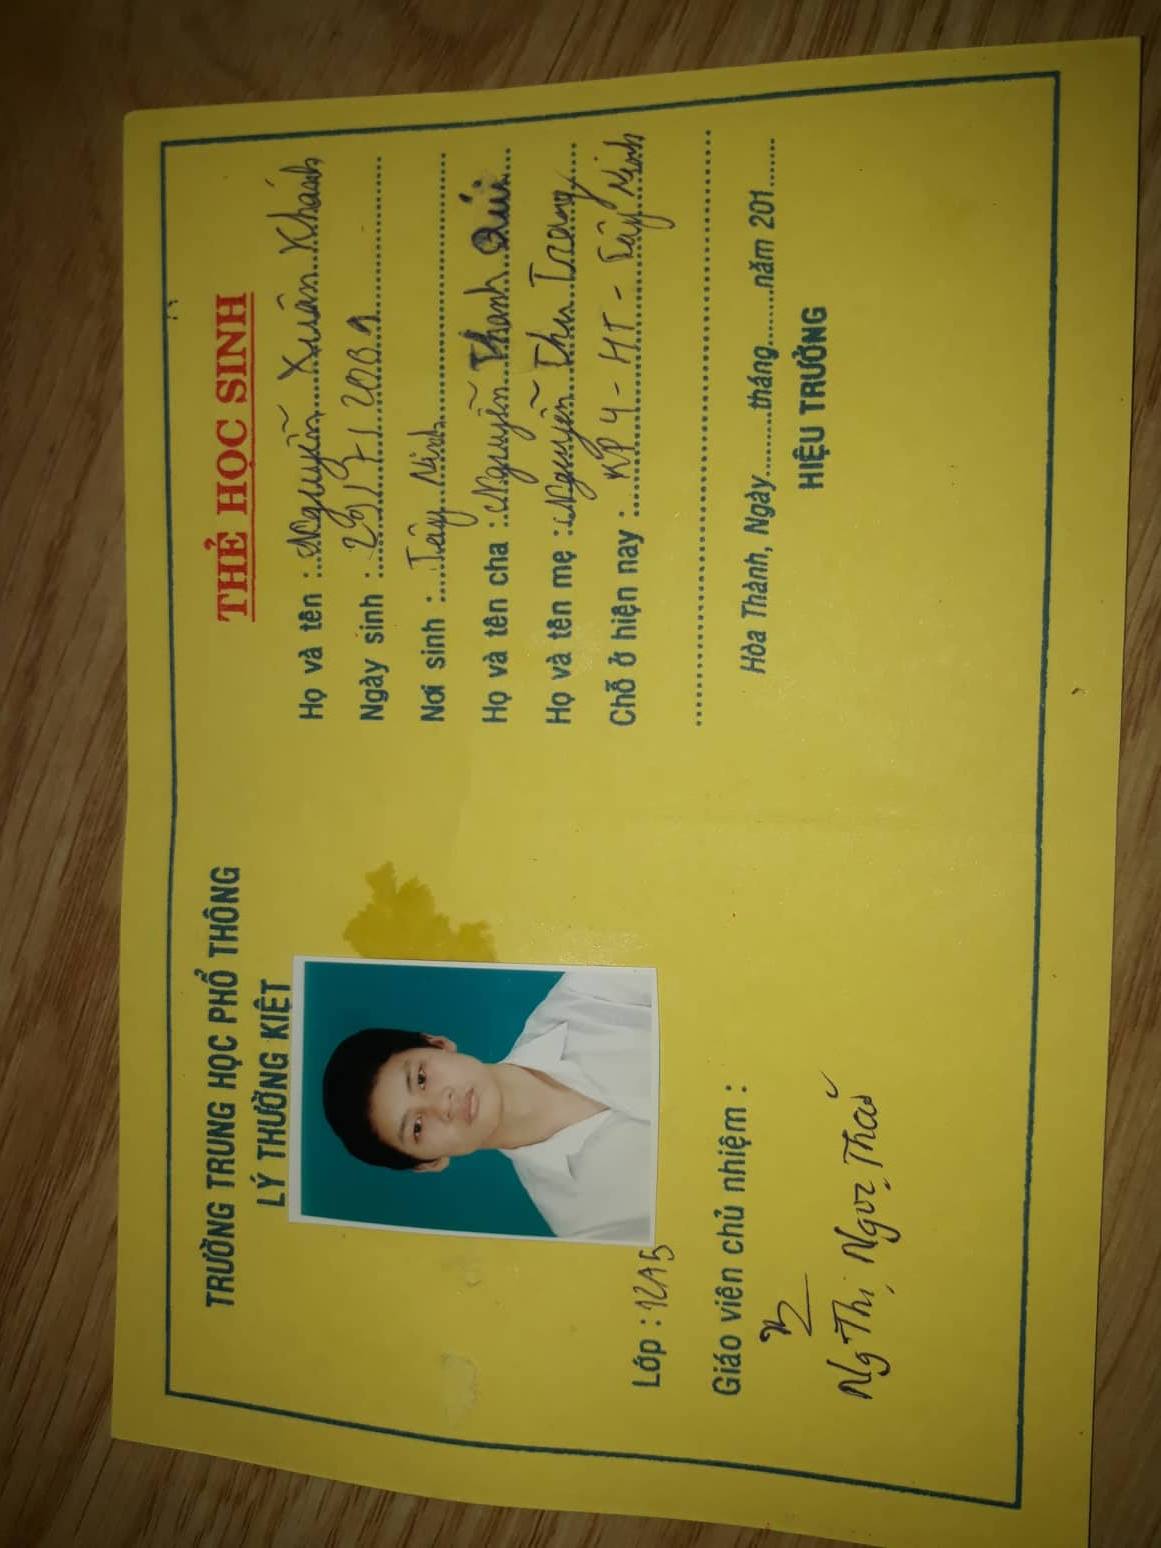 TRƯỜNG TRUNG HỌC PHỔ THÔNG
LÝ THƯỜNG KIỆT
Lớp : 12A5
Giáo viên chủ nhiệm :
Ng Thị Ngọc Thảo
THẺ HỌC SINH
Họ và tên : Nguyễn Xuân Khánh
Ngày sinh :
Nơi sinh : Tây Ninh
Họ và tên cha : Nguyễn Thanh Quí
Họ và tên mẹ : Nguyễn Thu Trang
Chỗ ở hiện nay : KP 4 - HT - Tây Ninh
Hòa Thành, Ngày..........tháng..........năm 201......
HIỆU TRƯỞNG